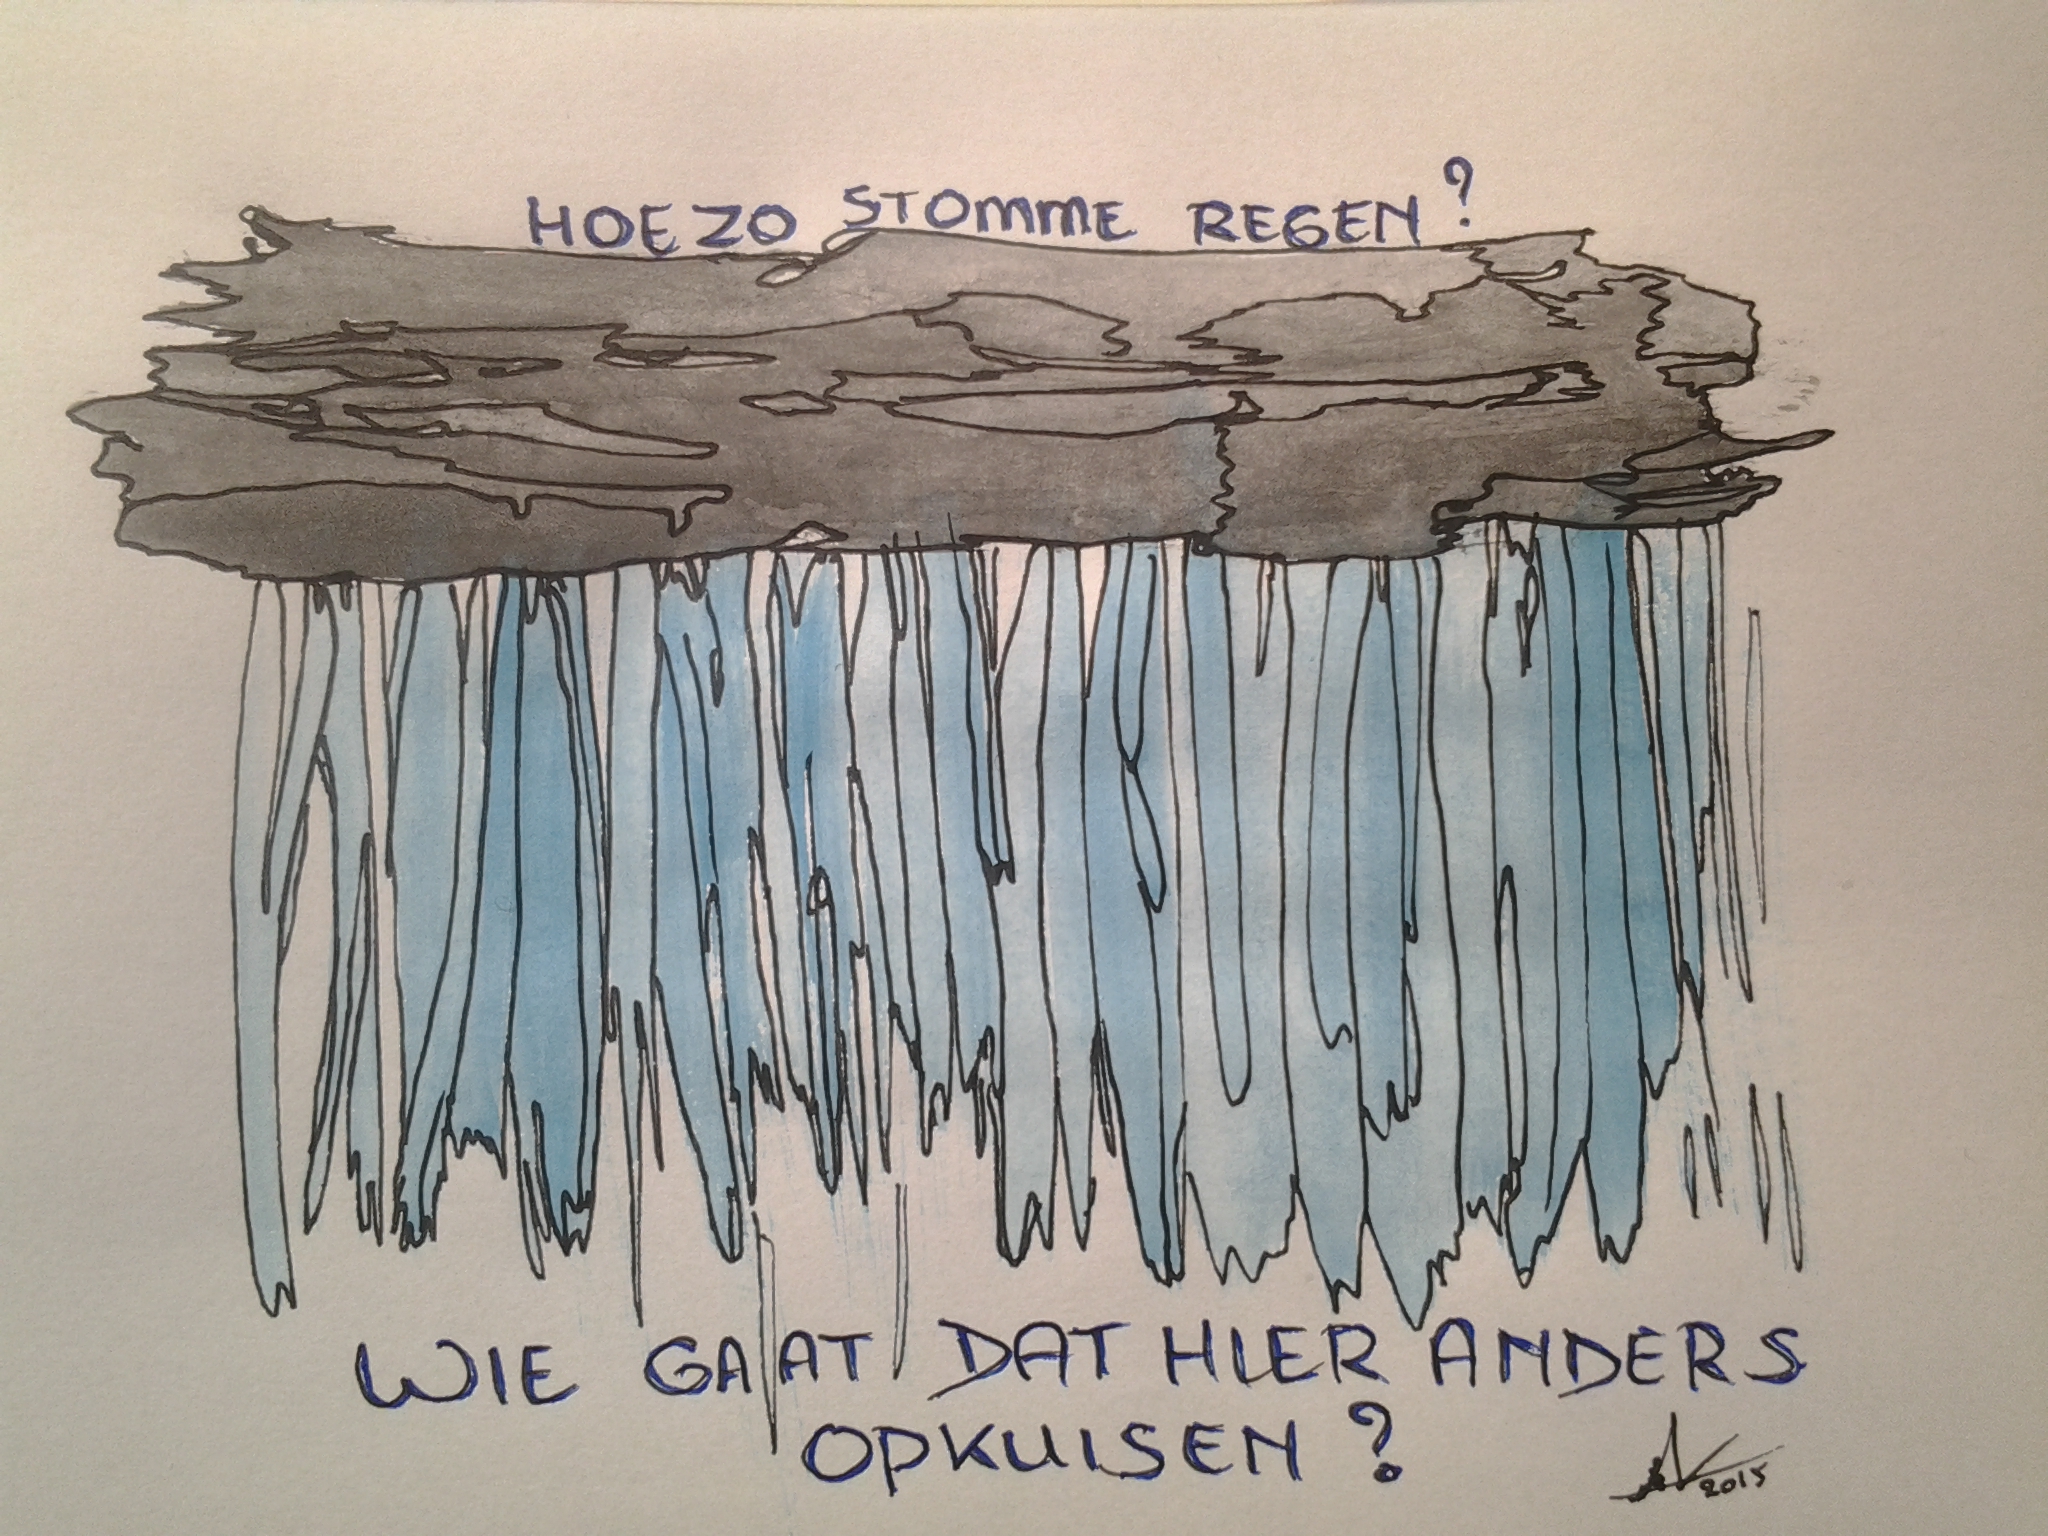 HOEZO STOMME REGEN?
WIE GAAT DAT HIER ANDERS
OPKUISEN?
2015